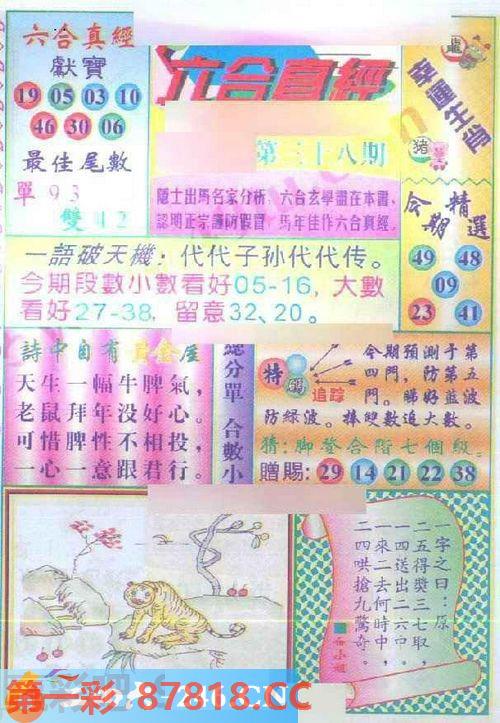 六合真經
獻寶
19 05 03 10
46 30 06
最佳尾數
單 9 3
雙 4 2
六合真經
第三十八期
隱士出馬名家分析，六合玄學盡在本書、
認明正宗謹防假冒，馬年佳作六合真經。
龍
幸運生肖
猪
今期精選
49 48
09
23 41
一語破天機：代代子孙代代传。
今期段數小數看好05-16，大數
看好27-38，留意32、20。
詩中自有黃金屋
天生一幅牛脾氣，
老鼠拜年没好心。
可惜脾性不相投，
一心一意跟君行。
總分單
合數小
特碼
追踪
今期預測于第
四門，防第五
門。睇好蓝波
防緑波。捧雙數追大數。
猜：脚登台階七個級。
贈賜：29 14 21 22 38
一字之曰：原
二五得獎三七取，
一四送出二六口，
一來二去何時中，
二四哄搶九驚奇。
第一彩 87818.CC
246.CN